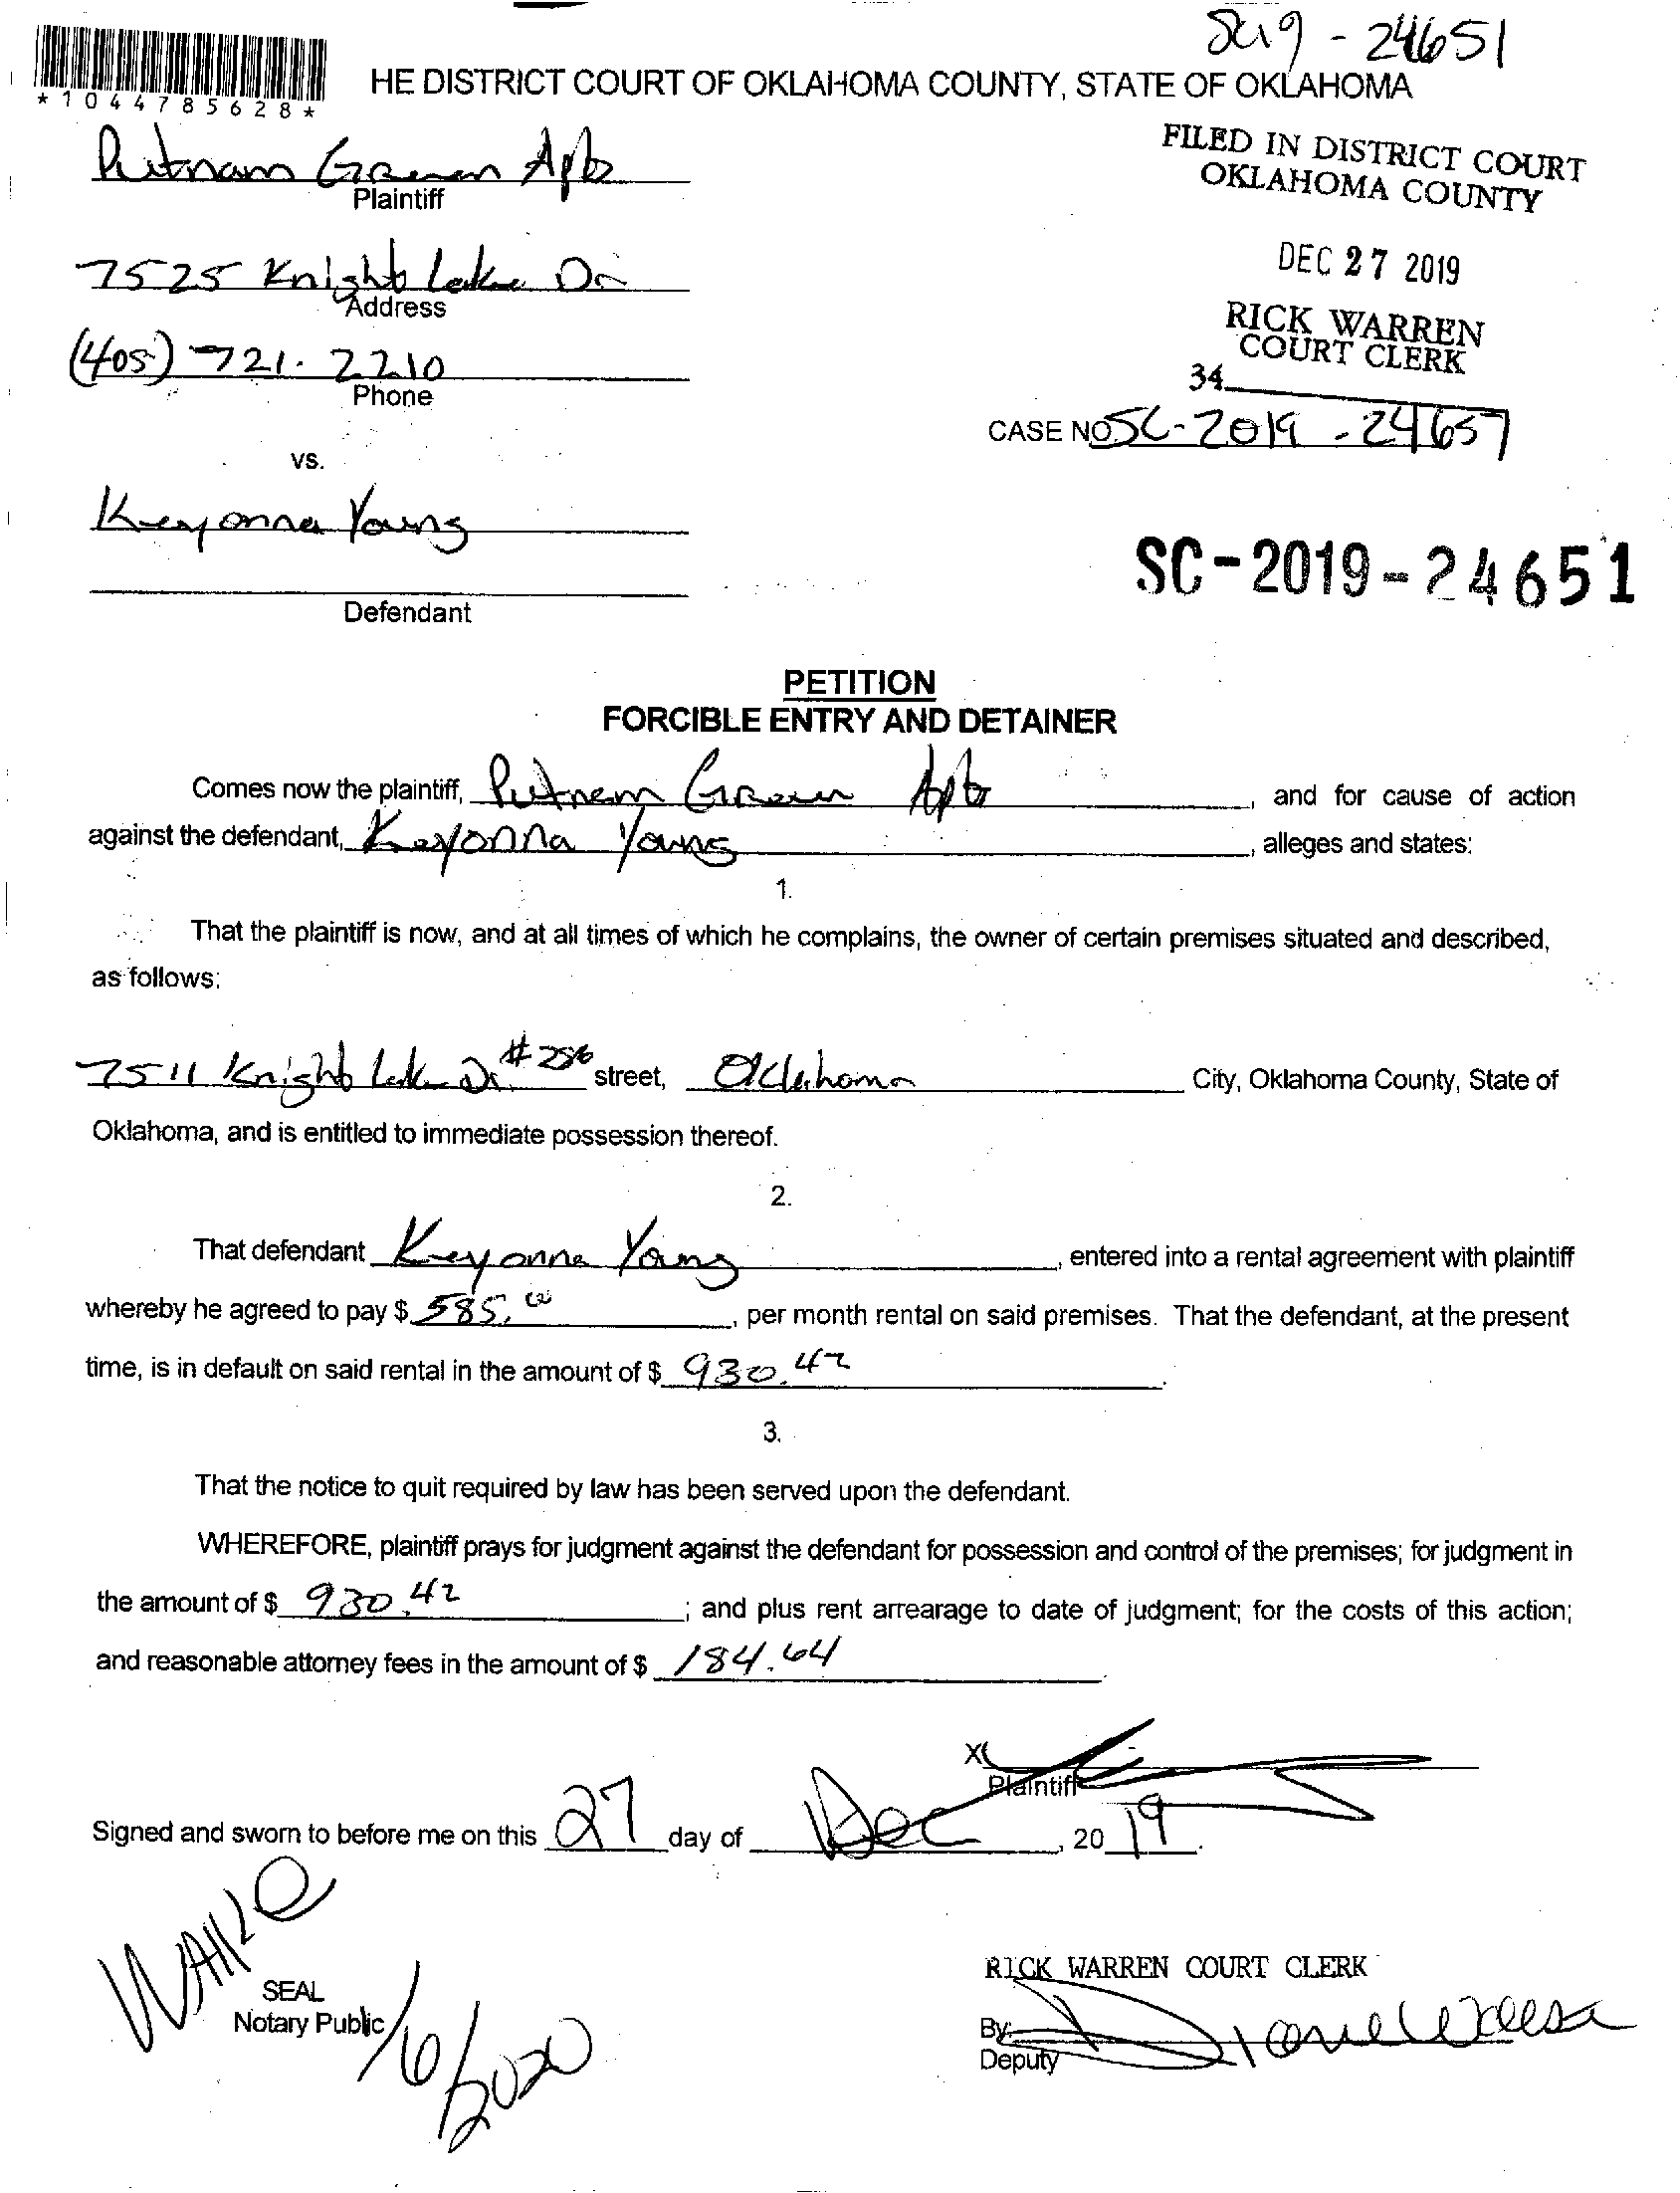 SC19 - 24651
*1044785628*
HE DISTRICT COURT OF OKLAHOMA COUNTY, STATE OF OKLAHOMA
Putnam Green Apts
Plaintiff
FILED IN DISTRICT COURT
OKLAHOMA COUNTY
7525 Knight Lake Dr
Address
DEC 27 2019
RICK WARREN
COURT CLERK
(405) 721-2210
Phone
34
CASE NO SC-2019-24657
vs.
Keyonna Young
SC-2019-24651
Defendant
PETITION
FORCIBLE ENTRY AND DETAINER
Comes now the plaintiff, Putnam Green Apts, and for cause of action
against the defendant, Keyonna Young, alleges and states:
1.
That the plaintiff is now, and at all times of which he complains, the owner of certain premises situated and described,
as follows:
7511 Knight Lake Dr. #286 street, Oklahoma City, Oklahoma County, State of
Oklahoma, and is entitled to immediate possession thereof.
2.
That defendant Keyonna Young, entered into a rental agreement with plaintiff
whereby he agreed to pay $ 585.00, per month rental on said premises. That the defendant, at the present
time, is in default on said rental in the amount of $ 930.42.
3.
That the notice to quit required by law has been served upon the defendant.
WHEREFORE, plaintiff prays for judgment against the defendant for possession and control of the premises; for judgment in
the amount of $ 930.42; and plus rent arrearage to date of judgment; for the costs of this action;
and reasonable attorney fees in the amount of $ 184.64.
X
Plaintiff
Signed and sworn to before me on this 27 day of Dec, 2019.
SEAL
Notary Public
1/6/2020
RICK WARREN COURT CLERK
By:
Deputy